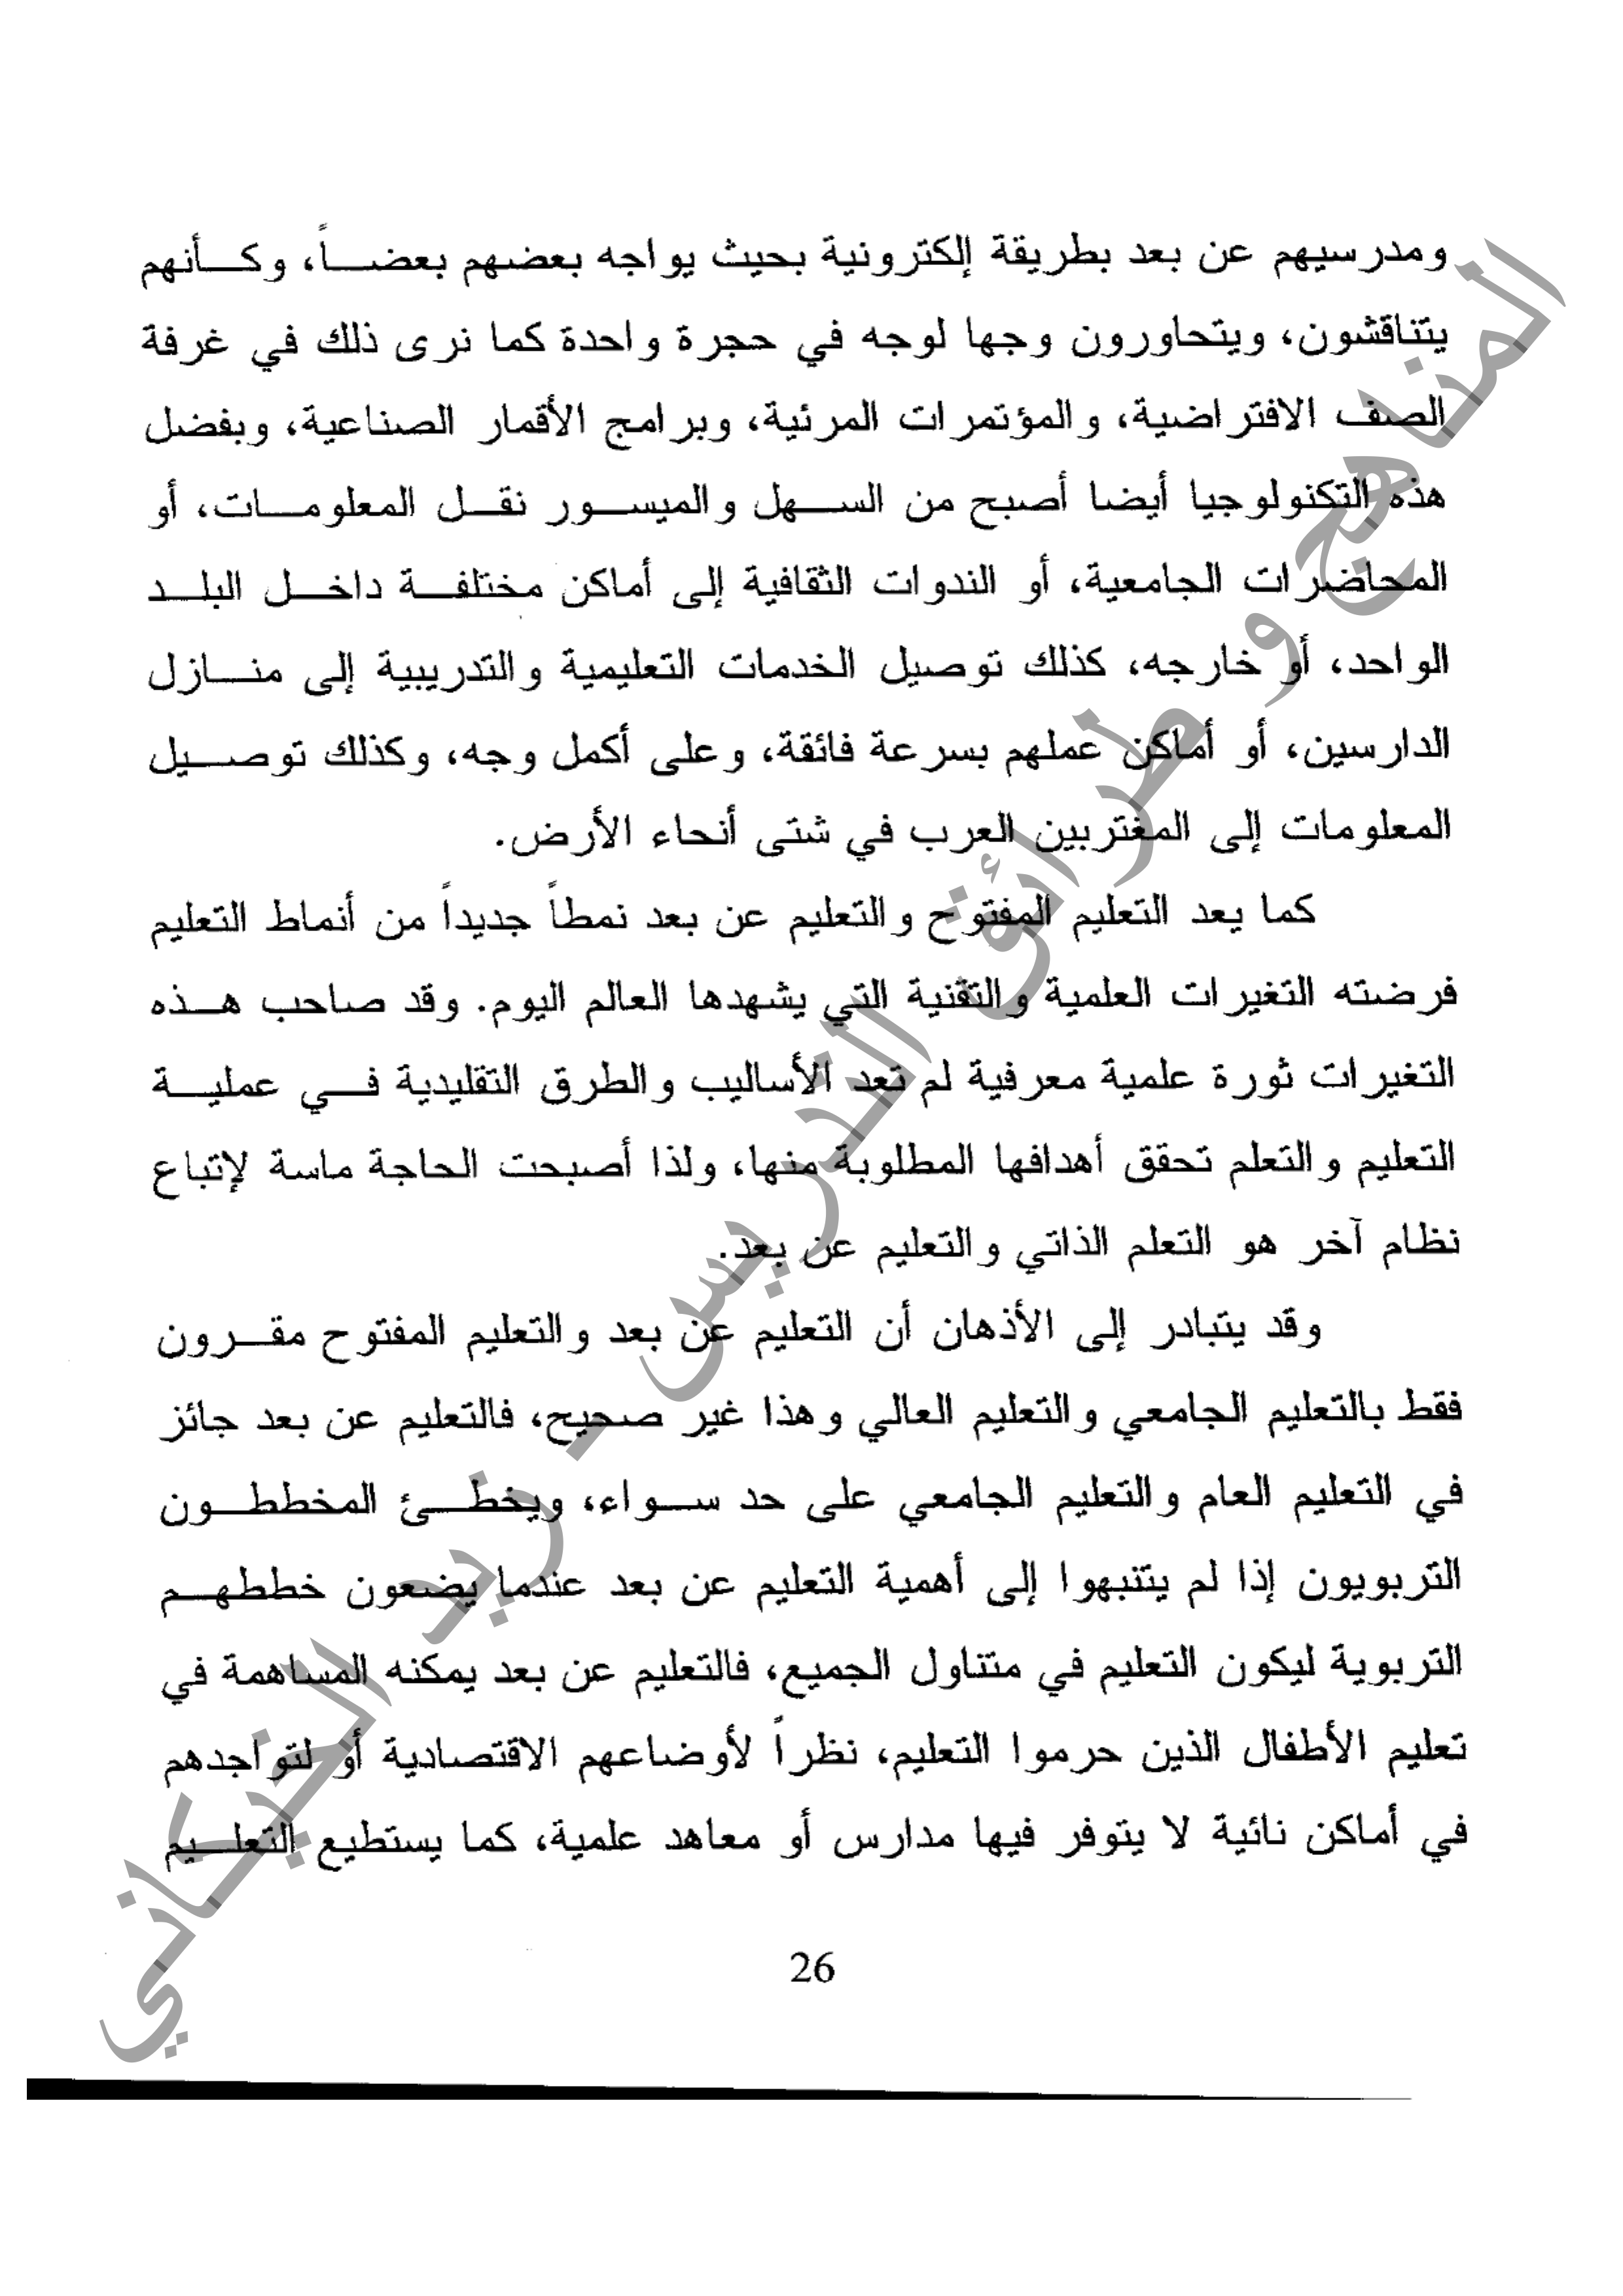 ومدرسيهم عن بعد بطريقة إلكترونية بحيث يواجه بعضهم بعضاً، وكأنهم
يتناقشون، ويتحاورون وجها لوجه في حجرة واحدة كما نرى ذلك في غرفة
الصف الافتراضية، والمؤتمرات المرئية، وبرامج الأقمار الصناعية، وبفضل
هذه التكنولوجيا أيضا أصبح من السهل والميسور نقل المعلومات، أو
المحاضرات الجامعية، أو الندوات الثقافية إلى أماكن مختلفة داخل البلد
الواحد، أو خارجه، كذلك توصيل الخدمات التعليمية والتدريبية إلى منازل
الدارسين، أو أماكن عملهم بسرعة فائقة، وعلى أكمل وجه، وكذلك توصيل
المعلومات إلى المغتربين العرب في شتى أنحاء الأرض.
كما يعد التعليم المفتوح والتعليم عن بعد نمطاً جديداً من أنماط التعليم
فرضته التغيرات العلمية والتقنية التي يشهدها العالم اليوم. وقد صاحب هذه
التغيرات ثورة علمية معرفية لم تعد الأساليب والطرق التقليدية في عملية
التعليم والتعلم تحقق أهدافها المطلوبة منها، ولذا أصبحت الحاجة ماسة لإتباع
نظام آخر هو التعلم الذاتي والتعليم عن بعد.
وقد يتبادر إلى الأذهان أن التعليم عن بعد والتعليم المفتوح مقرون
فقط بالتعليم الجامعي والتعليم العالي وهذا غير صحيح، فالتعليم عن بعد جائز
في التعليم العام والتعليم الجامعي على حد سواء، ويخطئ المخططون
التربويون إذا لم يتنبهوا إلى أهمية التعليم عن بعد عندما يضعون خططهم
التربوية ليكون التعليم في متناول الجميع، فالتعليم عن بعد يمكنه المساهمة في
تعليم الأطفال الذين حرموا التعليم، نظراً لأوضاعهم الاقتصادية أو لتواجدهم
في أماكن نائية لا يتوفر فيها مدارس أو معاهد علمية، كما يستطيع التعليم
26
المناهج و طرائق التدريس - زيد الخيكاني